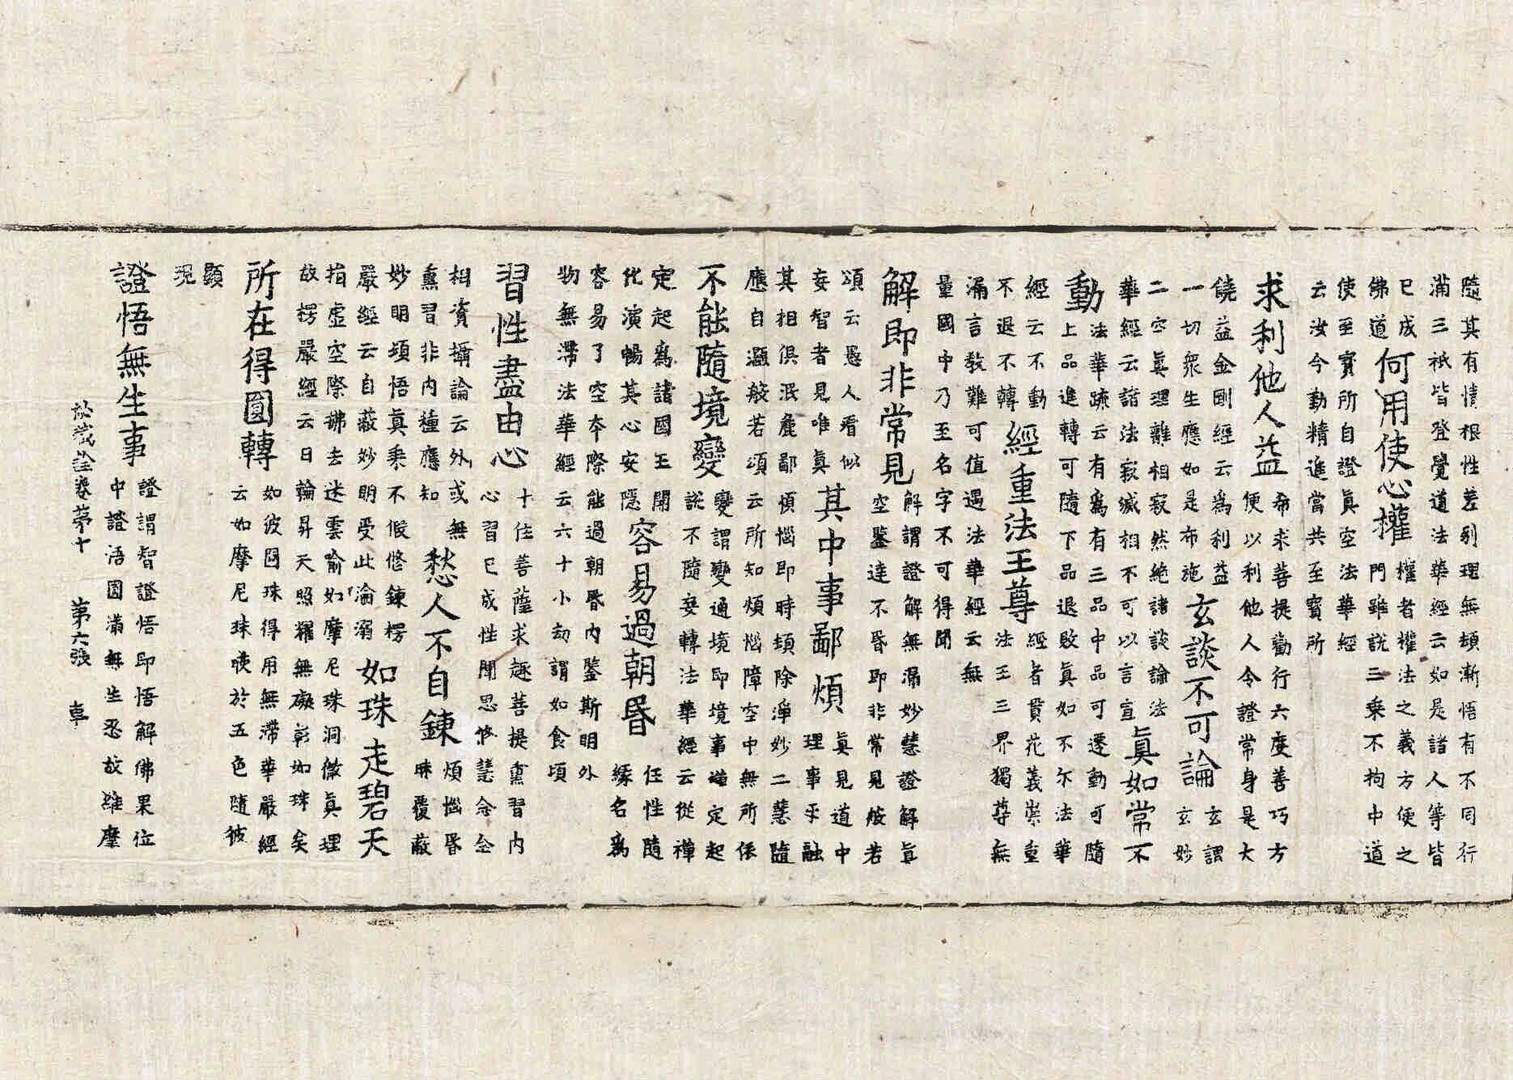 隨其有情根性差別理無頓漸悟有不同行
滿三祇皆登覺道法華經云如是諸人等皆
已成
佛道
何用使心權
權者權法之義方便之
門雖說三乘不拘中道
使至寶所自證真空法華經
云汝今勤精進當共至寶所
求利他人益
希求菩提勸行六度善巧方
便以利他人令證常身是大
饒益金剛經云為利益
一切衆生應如是布施
玄談不可論
玄謂
玄妙
二空真理離相寂然絶諸談論法
華經云諸法寂滅相不可以言宣
真如常不
動
法華疏云有為有三品中品可遷動可隨
上品進轉可隨下品退敗真如不尔法華
經云不動
不退不轉
經重法王尊
經者貫花義崇重
法王三界獨尊無
漏言教難可值遇法華經云無
量國中乃至名字不可得聞
解即非常見
解謂證解無漏妙慧證解真
空鑒達不昏即非常見般若
頌云愚人看似
妄智者見唯真
其中事鄙煩
真見道中
理事乎融
其相俱泯麁鄙煩惱即時頓除淨妙二慧隨
應自灝般若頌云所知煩惱障空中無所依
不能隨境變
變謂變通境即境事定起
訟不隨妄轉法華經云從禪
定起為諸國王開
化演暢其心安隱
容易過朝昏
任性隨
緣名為
容易了空本際能過朝昏内鑒斯明外
物無滯法華經云六十小劫謂如食頃
習性盡由心
十住善薩求趣菩提熏習内
心習已成性聞思修慧念念
相資攝論云外或無
熏習非内種應知
愁人不自鍊
煩惱昏
昧覆蔽
妙明頓悟真乘不假修鍊楞
嚴經云自蔽妙明受此淪溺
如珠走碧天
指虛空際拂去迷雲喻如摩尼珠洞徹真理
故楞嚴經云日輪昇天照耀無礙彰如珠矣
所在得圓轉
如彼圓珠得用無滯華嚴經
云如摩尼珠映於五色隨彼
顯
現
證悟無生事
證謂智證悟即悟解佛果位
中證語圓滿無生忍故雖摩
秘藏詮卷第十 第六張 章